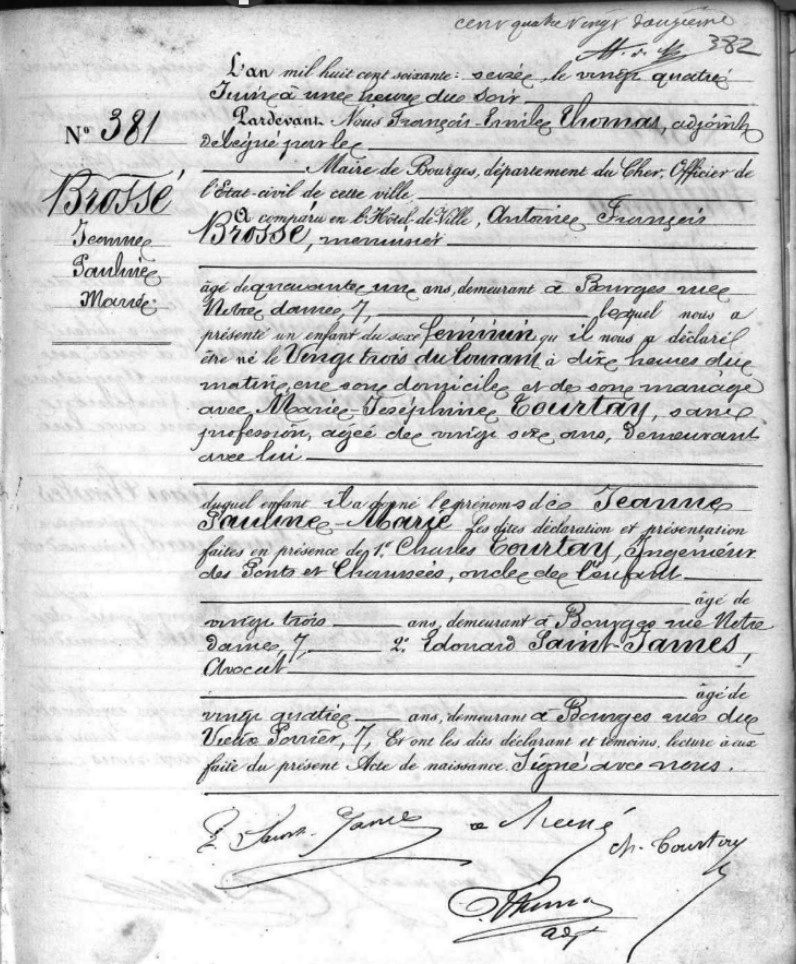 cent quatre vingt douzième
382
L'an mil huit cent soixante-seize, le vingt quatre
Juin à une heure du soir
Pardevant Nous François-Emile Thomas, adjoint
Nº 381
délégué par le
Maire de Bourges, département du Cher, Officier de
l'Etat-civil de cette ville
Brossé
A comparu en l'Hôtel-de-Ville, Antoine François
Jeanne
Brossé, menuisier
Pauline
Marie
âgé de quarante un ans, demeurant à Bourges rue
Notre dame, 7, lequel nous a
présenté un enfant du sexe féminin qu'il nous a déclaré
être né le Vingt trois du Courant à dix heures du
matin, en son domicile et de son mariage
avec Marie-Joséphine Tourtay, sans
profession, agée de vingt six ans, Demeurant
avec lui
duquel enfant il a donné les prénoms de Jeanne
Pauline-Marie Les dites déclaration et présentation
faites en présence de 1º Charles Tourtay, Ingénieur
des Ponts et Chaussées, oncle de l'enfant
âgé de
vingt trois ans, demeurant à Bourges rue Notre
dame, 7, 2º Edouard Saint-James,
Avocat
âgé de
vingt quatre ans, demeurant à Bourges rue du
Vieux Poirier, 7, Et ont les dits déclarant et témoins, lecture à eux
faite du présent Acte de naissance. Signé avec nous.
E. Saint-James
Ch. Tourtay
Thomas
adj